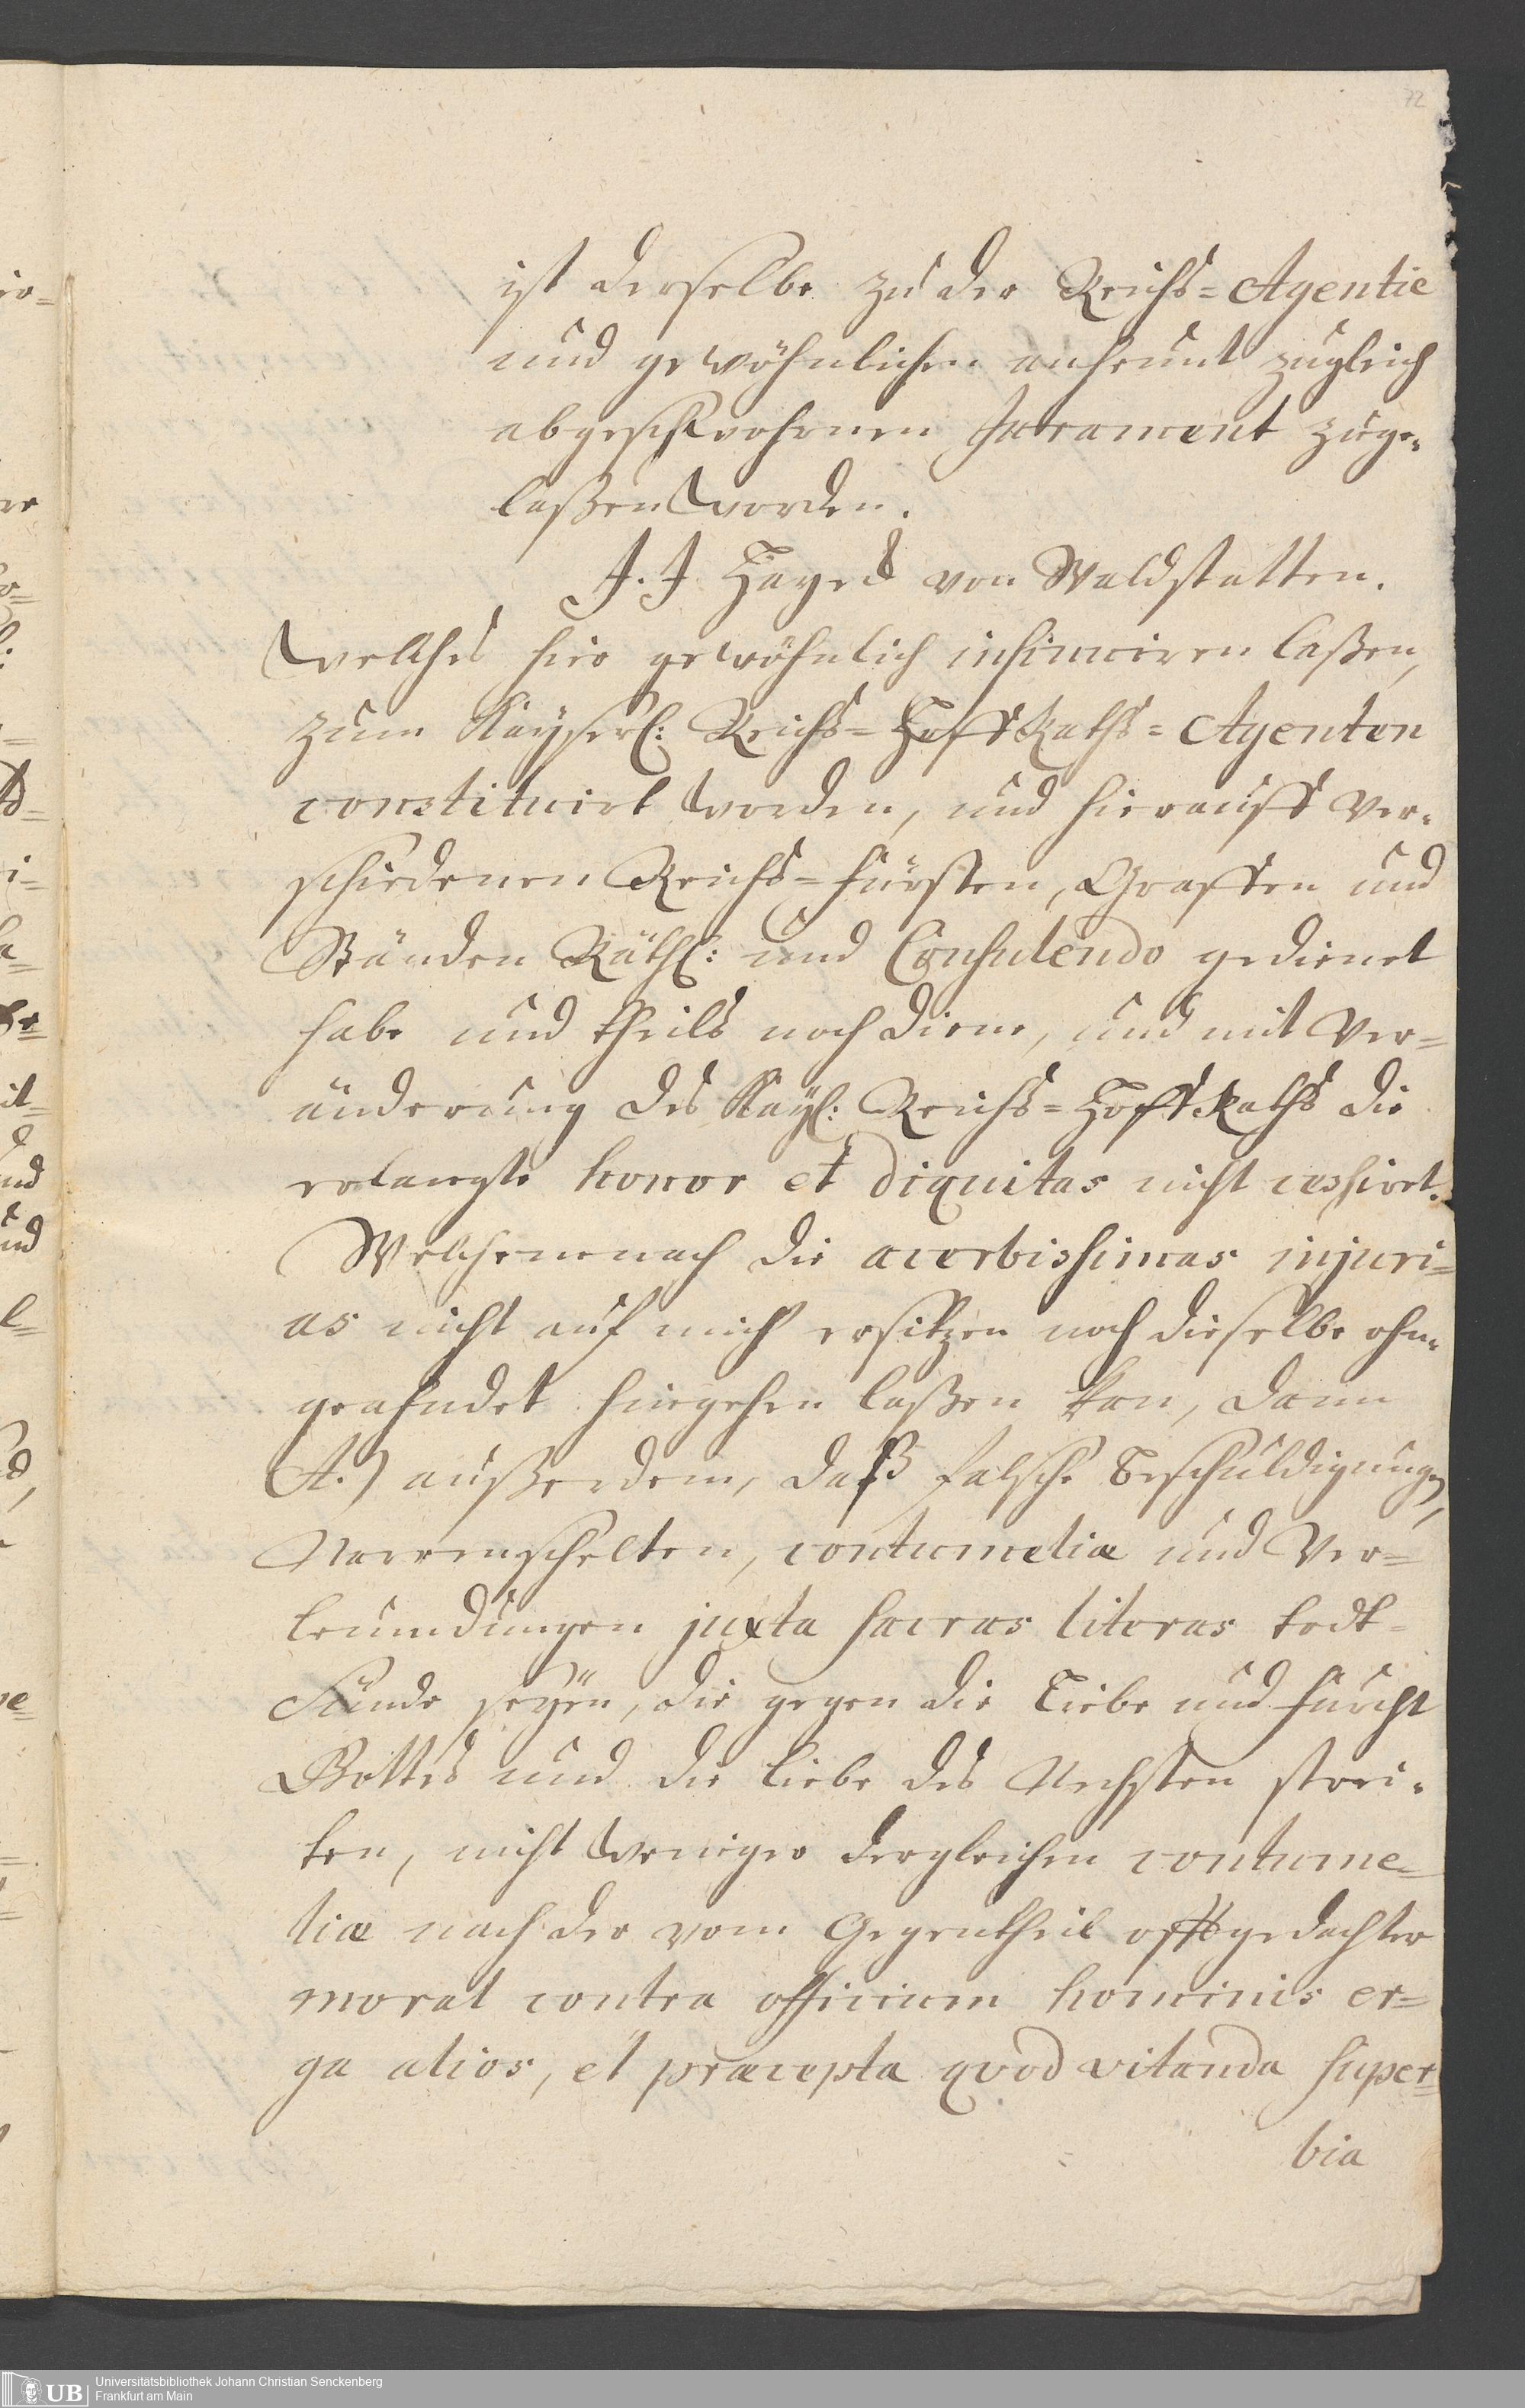 72
ist derselbe zu der Reichs=Agentie
und gewöhnlichen anheunt zugleich
abgeschwohrnen Jurament zuge-
laßen worden.
J. J. Hayeck von Waldstatten.
Welches hier gewöhnlich insinuiren laßen,
zum Kayserl: Reichs=HoffRaths=Agenten
constituirt worden, und hierauff ver-
schiedenen Reichs=Fürsten, Graffen und
Ständen Räthl: und Consulendo gedienet
habe und theils noch diene, und mit Ver=
änderung des Kayl: Reichs=HoffRaths die
erlangte honor et dignitas nicht cessiret.
Welchemnach die acerbissimas injuri=
as nicht auf mich ersitzen noch dieselbe ohn-
geahndet hingehen laßen kan, dann
A.) außerdem, daß falsche Beschuldigungen,
Narrenschelten, contumeliæ und Ver=
leumdungen juxta sacras literas todt=
Sünde seyen, die gegen die Liebe und Furcht
Gottes und die Liebe des Nechsten strei-
ten, nicht weniger dergleichen contume=
liæ nach der vom Gegentheil offtgedachter
moral contra officium hominis er=
ga alios, et præcepta qvod vitanda super=
bia
UB
Universitätsbibliothek Johann Christian Senckenberg
Frankfurt am Main